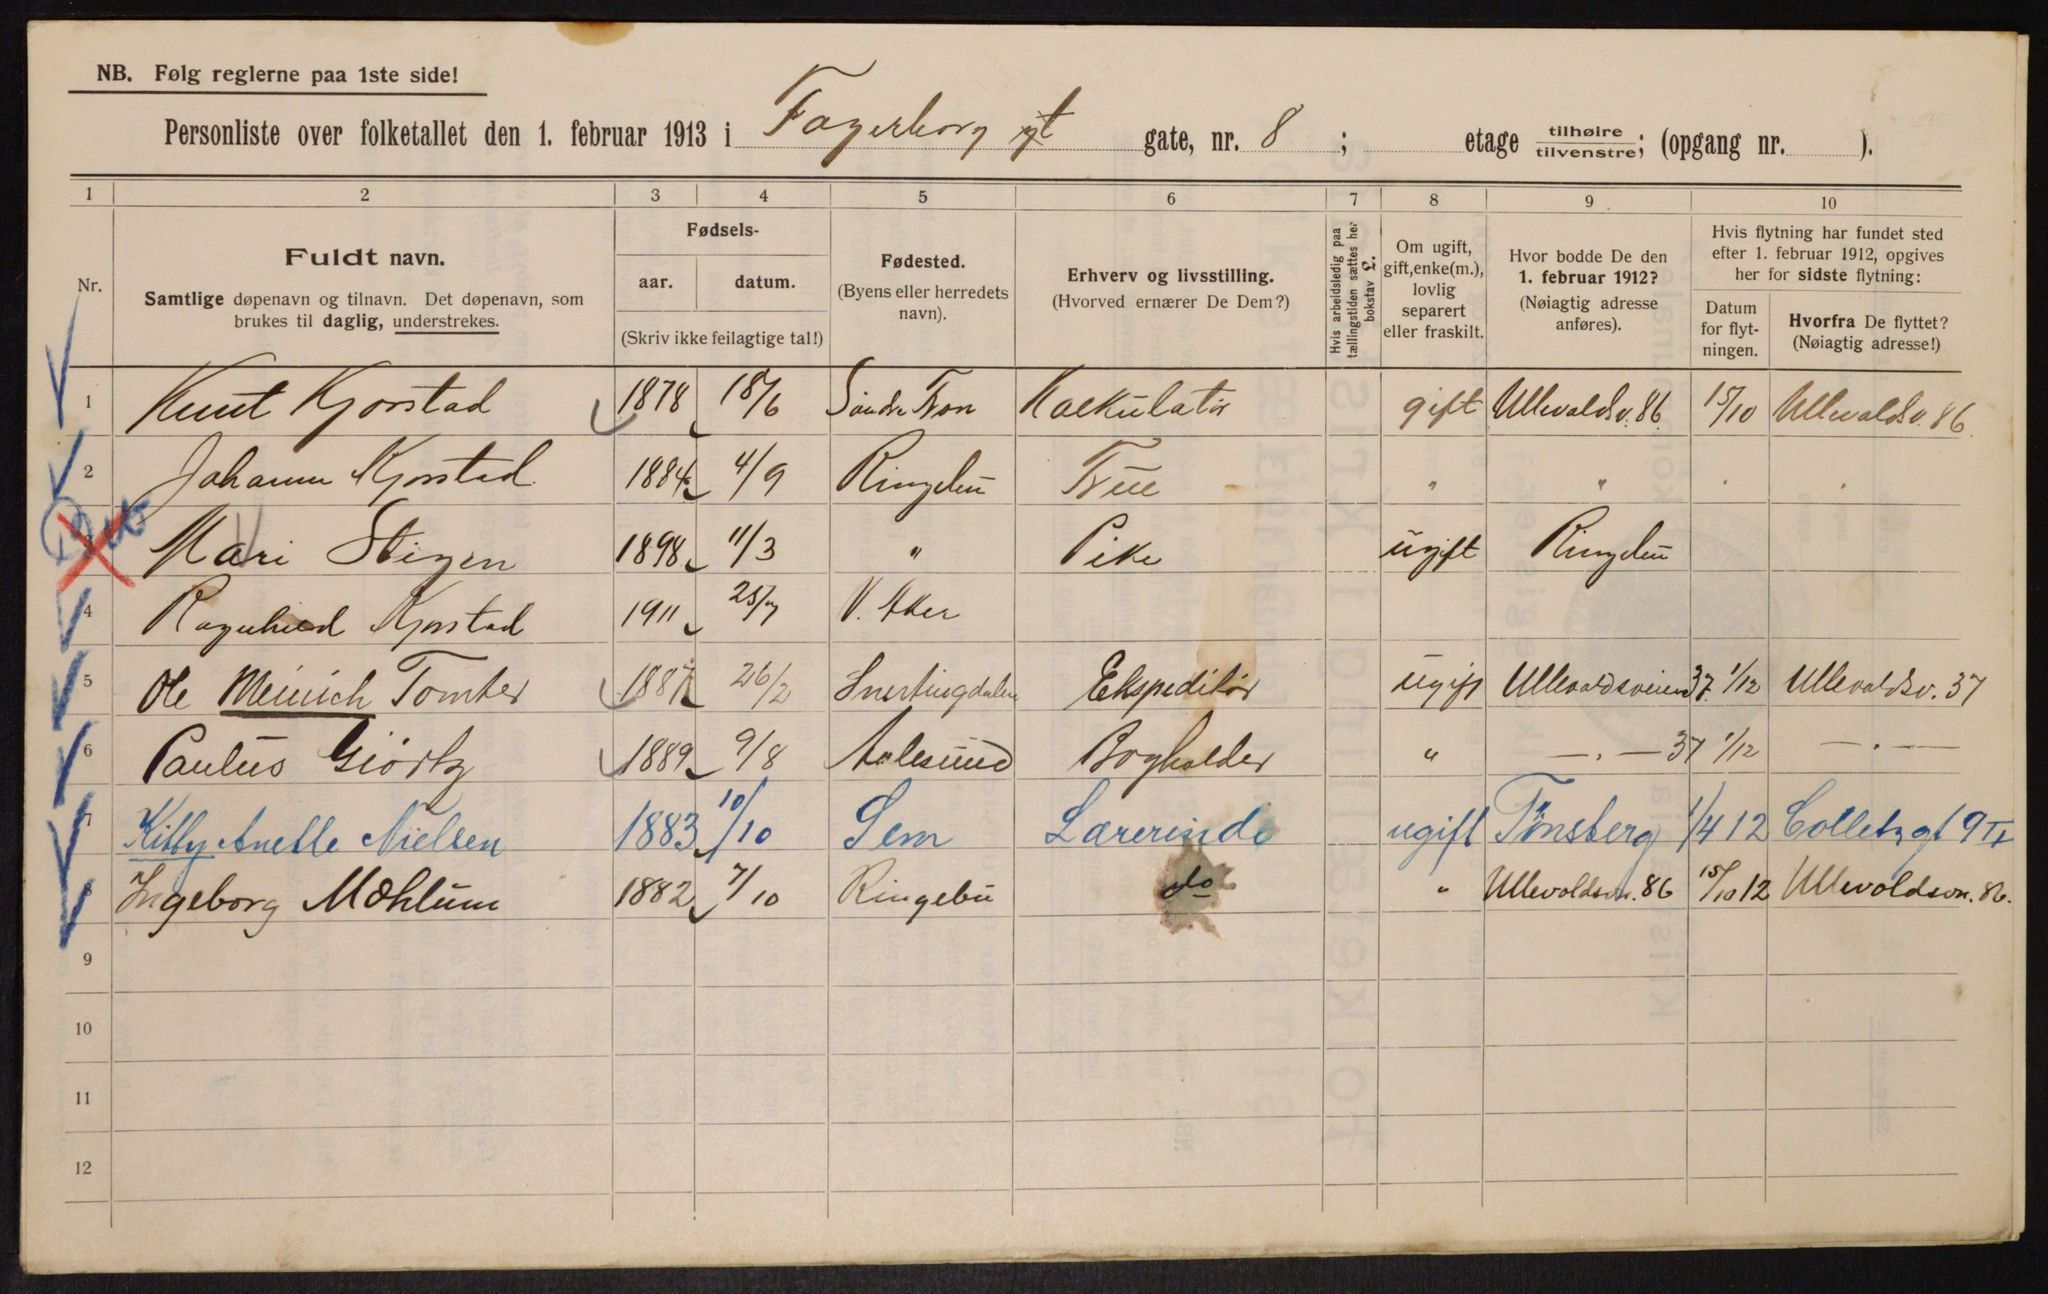 NB. Følg reglerne paa 1ste side!
Personliste over folketallet den 1. februar 1913 i Fagerborg gt gate, nr. 8 ; etage tilhøire / tilvenstre; (opgang nr. ).
1 2 3 4 5 6 7 8 9 10
Nr.
Fuldt navn.
Samtlige døpenavn og tilnavn. Det døpenavn, som
brukes til daglig, understrekes.
Fødsels-
aar. datum.
(Skriv ikke feilagtige tal!)
Fødested.
(Byens eller herredets
navn).
Erhverv og livsstilling.
(Hvorved ernærer De Dem?)
Hvis arbeidsledig paa
tællingstiden sættes her
bokstav £.
Om ugift,
gift, enke(m.),
lovlig
separert
eller fraskilt.
Hvor bodde De den
1. februar 1912?
(Nøiagtig adresse
anføres).
Hvis flytning har fundet sted
efter 1. februar 1912, opgives
her for sidste flytning:
Datum
for flyt-
ningen.
Hvorfra De flyttet?
(Nøiagtig adresse!)
1 Knut Kjorstad 1878 18/6 Søndre Fron Kalkulatør gift Ullevaldsv. 86 15/10 Ullevaldsv. 86
2 Johanne Kjorstad 1884 4/9 Ringebu Frue " "
3 Mari Stigen 1898 11/3 " Pike ugift Ringebu
4 Ragnhild Kjorstad 1911 25/7 V. Aker
5 Ole Meinich Tomter 1887 26/2 Snertingdalen Ekspeditør ugift Ullevaldsveien 37. 1/12 Ullevaldsv. 37
6 Paulus Giörtz 1889 9/8 Aalesund Bogholder " —"— 37 1/12 —"—
7 Kitty Anette Nielsen 1883 10/10 Sem Lærerinde ugift Tønsberg 1/4 12 Colletsgt 9 II
8 Ingeborg Mæhlum 1882 7/10 Ringebu do " Ullevoldsvn. 86 15/10 12 Ullevoldsvn. 86.
9
10
11
12